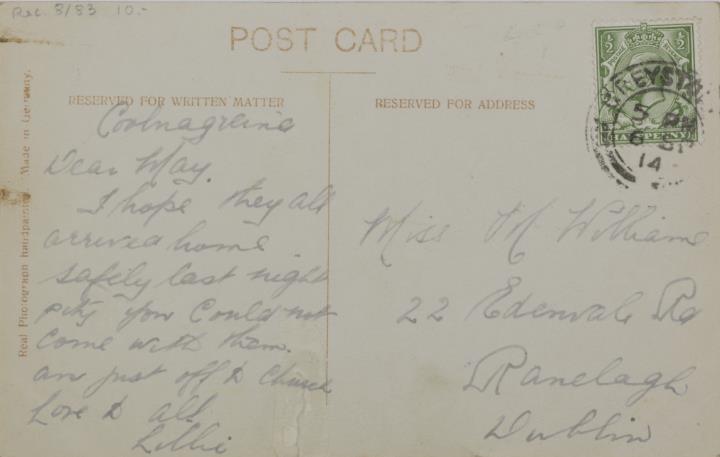 Rec. 8/83 10.-
POST CARD
RESERVED FOR WRITTEN MATTER
RESERVED FOR ADDRESS
Real Photograph Handpainted. Made in Germany.
Coolnagreina
Dear May.
I hope they all
arrived home
safely last night
pity you could not
come with them.
am just off to church
Love to all
Lillie
Miss M Williams
22 Edenvale Rd
Ranelagh
Dublin
½ ½
HALFPENNY
GREYSTONES
5 PM
6 SP
14